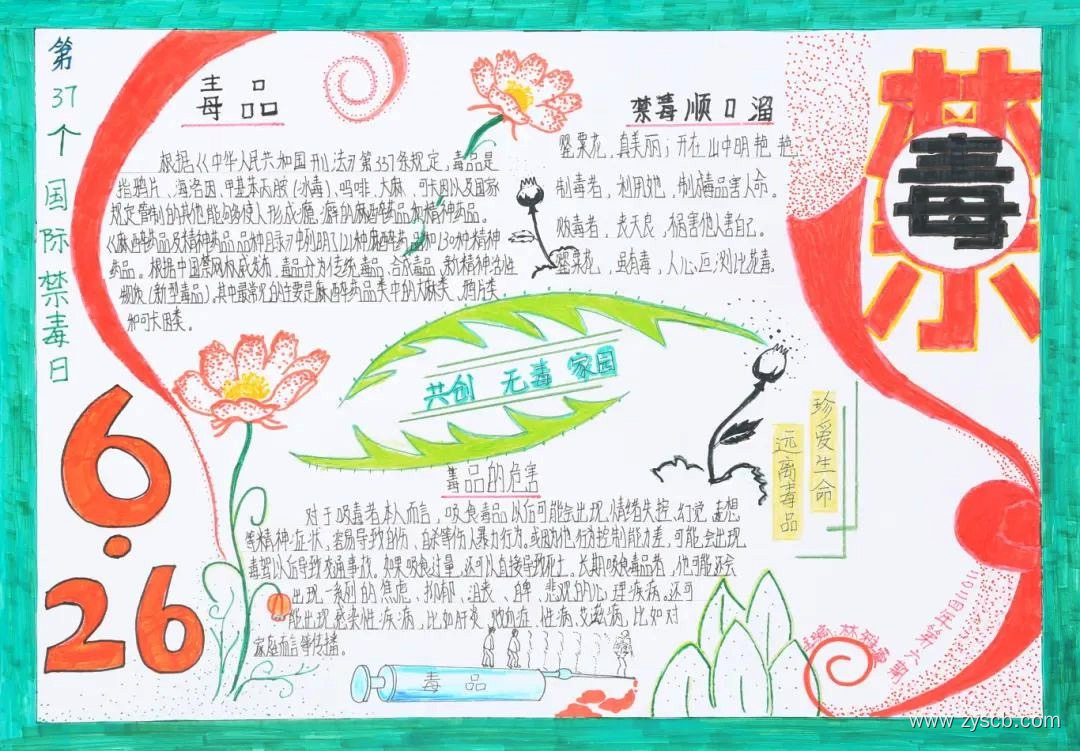 第37个国际禁毒日
毒品
根据《中华人民共和国刑法》第357条规定,毒品是
指鸦片、海洛因、甲基苯丙胺(冰毒)、吗啡、大麻、可卡因以及国家
规定管制的其他能够使人形成瘾癖的麻醉药品和精神药品。
《麻醉药品及精神药品品种目录》中列明了121种麻醉药品和130种精神
药品。根据中国禁网权威发布,毒品分为传统毒品、合成毒品、新精神活性
物质(新型毒品),其中最常见的主要是麻醉药品类中的大麻类、鸦片类
和可卡因类。
禁毒顺口溜
罂粟花,真美丽;开在山中明艳艳
制毒者,利用她,制成毒品害人命。
贩毒者,丧天良,祸害他人害自己。
罂粟花,虽有毒,人心叵测比花毒。
禁毒
共创 无毒 家园
珍爱生命
远离毒品
6.26
毒品的危害
对于吸毒者本人而言,吸食毒品以后可能会出现情绪失控、幻觉、妄想
等精神症状,容易导致自伤、自杀等伤人暴力行为。或因为他行为控制能力差,可能会出现
毒驾以后导致交通事故。如果吸食过量,还可以直接导致死亡。长期吸食毒品者,他可能还会
出现一系列的焦虑、抑郁、消丧、自卑、悲观的心理疾病。还可
能出现感染性疾病,比如肝炎、败血症、性病、艾滋病,比如对
家庭而言等传播。
毒品
二〇二四年
主编 林
www.zyscb.com